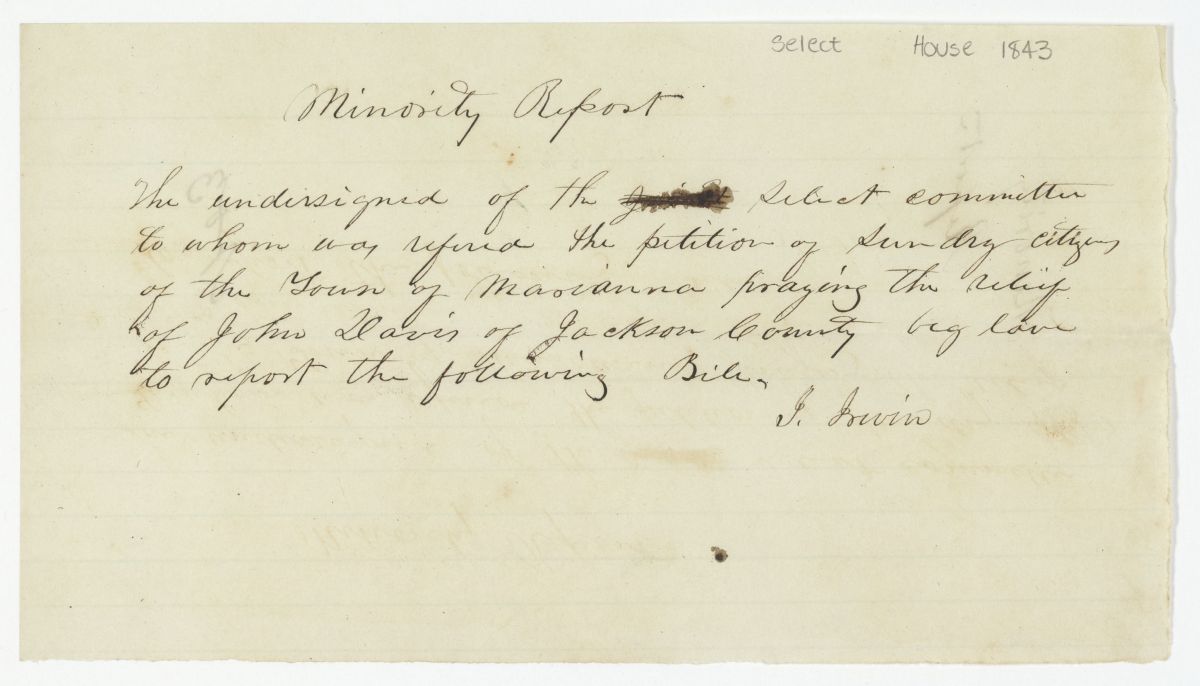 Select House 1843
Minority Report
The undersigned of the joint select committee
to whom was refered the petition of sundry citizens
of the Town of Marianna praying the relief
of John Davis of Jackson County beg lave
to report the following Bill.
J. Irwin